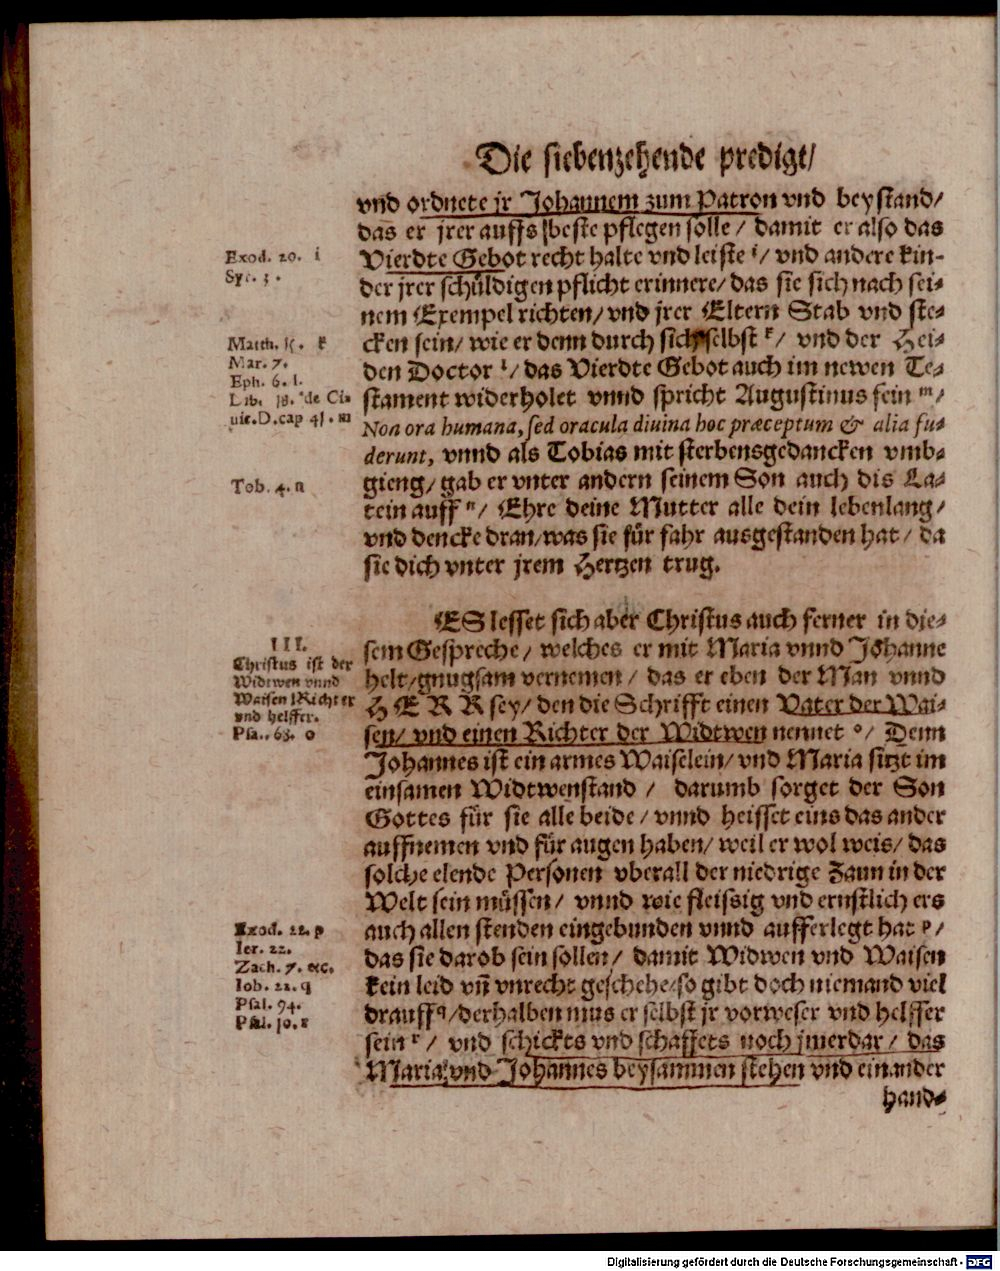 Die siebenzehende predigt/
vnd ordnete jr Johannem zum Patron vnd beystand/
das er jrer auffs beste pflegen solle / damit er also das
Vierdte Gebot recht halte vnd leiste i/ vnd andere kin-
der jrer schüldigen pflicht erinnere/ das sie sich nach sei-
nem Exempel richten/ vnd jrer Eltern Stab vnd ste-
cken sein/ wie er denn durch sich selbst k/ vnd der Hei-
den Doctor l/ das Vierdte Gebot auch im newen Te-
stament widerholet vnnd spricht Augustinus fein m/
Non ora humana, sed oracula diuina hoc præceptum & alia fu-
derunt, vnnd als Tobias mit sterbensgedancken vmb-
gieng/ gab er vnter andern seinem Son auch dis La-
tein auff n/ Ehre deine Mutter alle dein lebenlang/
vnd dencke dran/was sie für fahr ausgestanden hat / da
sie dich vnter jrem Hertzen trug.
ES lesset sich aber Christus auch ferner in die-
sem Gespreche/ welches er mit Maria vnnd Johanne
helt/gnugsam vernemen / das er eben der Man vnnd
HERR sey/ den die Schrifft einen Vater der Wai-
sen/ vnd einen Richter der Widtwen nennet o/ Denn
Johannes ist ein armes Waiselein/ vnd Maria sitzt im
einsamen Widtwenstand / darumb sorget der Son
Gottes für sie alle beide / vnnd heisset eins das ander
auffnemen vnd für augen haben/ weil er wol weis/ das
solche elende Personen vberall der niedrige Zaun in der
Welt sein müssen/ vnnd wie fleissig vnd ernstlich ers
auch allen stenden eingebunden vnnd aufferlegt hat p/
das sie darob sein sollen/ damit Widwen vnd Waisen
kein leid vñ vnrecht geschehe/so gibt doch niemand viel
drauff q/derhalben mus er selbst jr vorweser vnd helffer
sein r/ vnd schickts vnd schaffets noch jmerdar/ das
Maria vnd Johannes beysammen stehen vnd einander
hand-
Exod. 20. i
Syr. 3.
Matth. 15. k
Mar. 7.
Eph. 6. l.
Lib. 18. de Ci-
uit.D.cap 41. m
Tob. 4. n
III.
Christus ist der
Widtwen vnnd
Waisen Richter
vnd helffer.
Psa. 63. o
Exod. 22. p
Ier. 22.
Zach. 7. &c.
Iob. 22. q
Psal. 94.
Psal. 10. r
Digitalisierung gefördert durch die Deutsche Forschungsgemeinschaft - DFG